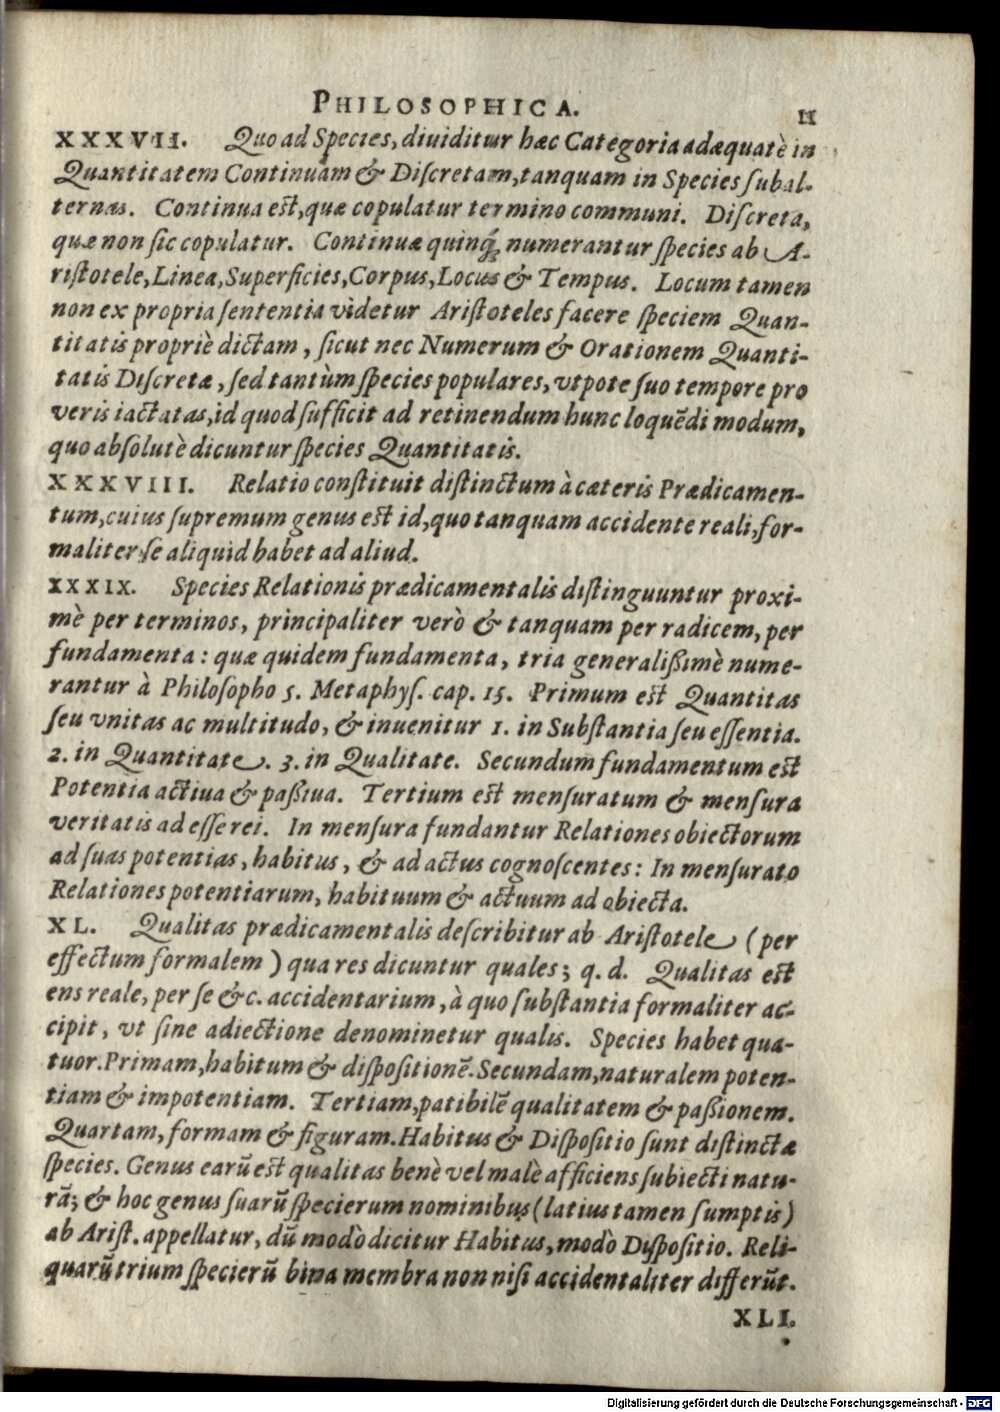 PHILOSOPHICA. 11
XXXVII. Quo ad Species, diuiditur hæc Categoria adæquatè in
Quantitatem Continuam & Diſcretam, tanquam in Species ſubal-
ternas. Continua eſt, quæ copulatur termino communi. Diſcreta,
quæ non ſic copulatur. Continuæ quinq́; numerantur ſpecies ab A-
riſtotele, Linea, Superficies, Corpus, Locus & Tempus. Locum tamen
non ex propria ſententia videtur Ariſtoteles facere ſpeciem Quan-
titatis propriè dictam, ſicut nec Numerum & Orationem Quanti-
tatis Diſcretæ, ſed tantùm ſpecies populares, vtpote ſuo tempore pro
veris iactatas, id quod ſufficit ad retinendum hunc loquēdi modum,
quo abſolutè dicuntur ſpecies Quantitatis.
XXXVIII. Relatio conſtituit diſtinctum à cæteris Prædicamen-
tum, cuius ſupremum genus eſt id, quo tanquam accidente reali, for-
maliter ſe aliquid habet ad aliud.
XXXIX. Species Relationis prædicamentalis diſtinguuntur proxi-
mè per terminos, principaliter verò & tanquam per radicem, per
fundamenta: quæ quidem fundamenta, tria generalißimè nume-
rantur à Philoſopho 5. Metaphyſ. cap. 15. Primum eſt Quantitas
ſeu vnitas ac multitudo, & inuenitur 1. in Subſtantia ſeu eſſentia.
2. in Quantitate. 3. in Qualitate. Secundum fundamentum eſt
Potentia actiua & paßiua. Tertium eſt menſuratum & menſura
veritatis ad eſſe rei. In menſura fundantur Relationes obiectorum
ad ſuas potentias, habitus, & ad actus cognoſcentes: In menſurato
Relationes potentiarum, habituum & actuum ad obiecta.
XL. Qualitas prædicamentalis deſcribitur ab Ariſtotele (per
effectum formalem) qua res dicuntur quales; q. d. Qualitas eſt
ens reale, per ſe &c. accidentarium, à quo ſubſtantia formaliter ac-
cipit, vt ſine adiectione denominetur qualis. Species habet qua-
tuor. Primam, habitum & diſpoſitionē. Secundam, naturalem poten-
tiam & impotentiam. Tertiam, patibilē qualitatem & paßionem.
Quartam, formam & figuram. Habitus & Diſpoſitio ſunt diſtinctæ
ſpecies. Genus earū eſt qualitas benè vel malè afficiens ſubiecti natu-
rā; & hoc genus ſuarū ſpecierum nominibus (latius tamen ſumptis)
ab Ariſt. appellatur, dū modò dicitur Habitus, modò Diſpoſitio. Reli-
quarū trium ſpecierū bina membra non niſi accidentaliter differūt.
XLI.
Digitalisierung gefördert durch die Deutsche Forschungsgemeinschaft - DFG